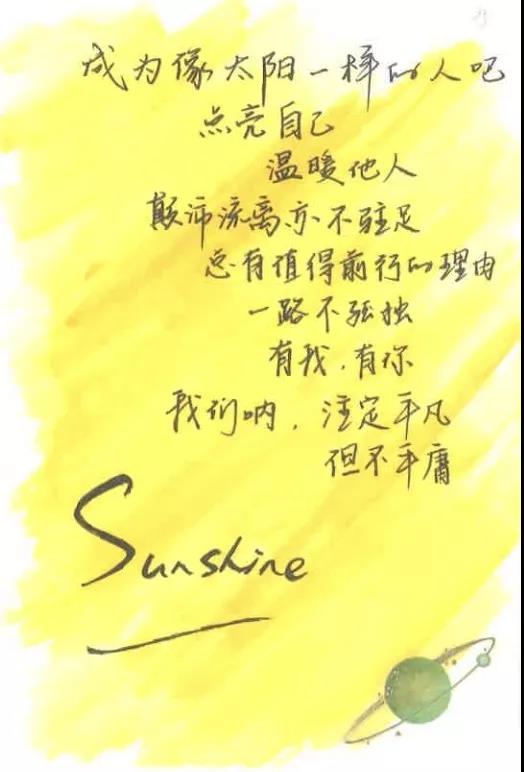 成为像太阳一样的人吧
点亮自己
温暖他人
颠沛流离亦不驻足
总有值得前行的理由
一路不孤独
有我,有你
我们呐,注定平凡
但不平庸
Sunshine